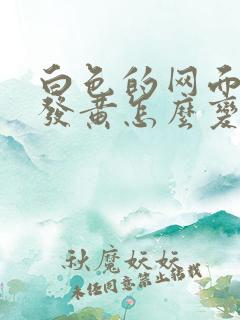 白色的网而
發黄怎麼變
秋魔妖妖
未任同意禁止转载